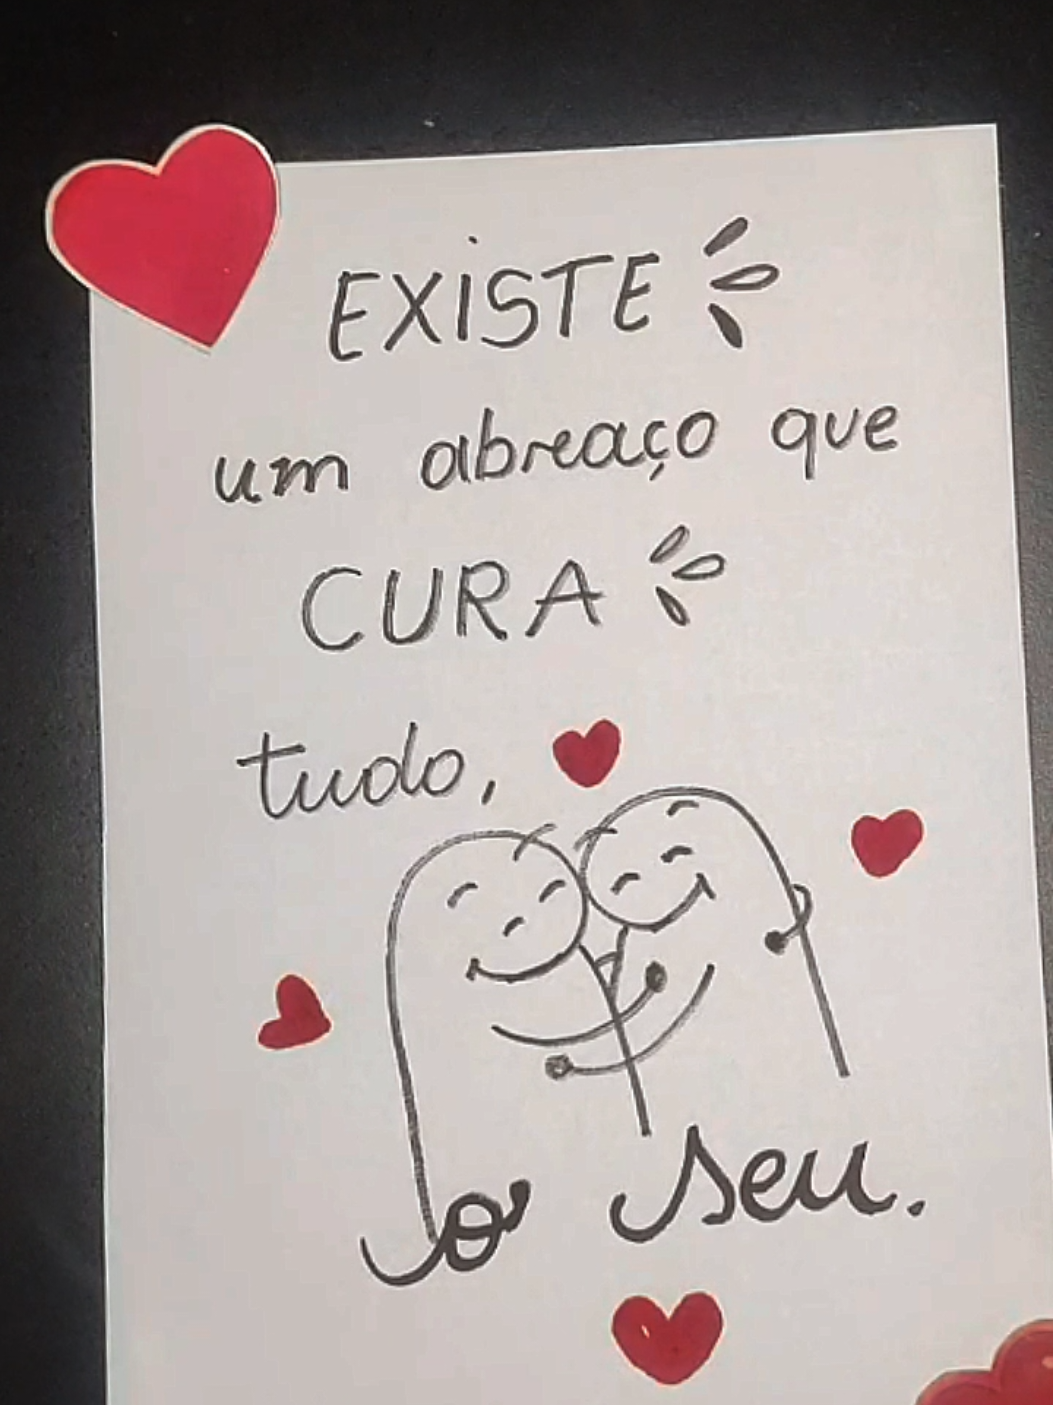 EXISTE
um abraço que
CURA
tudo,
o seu.